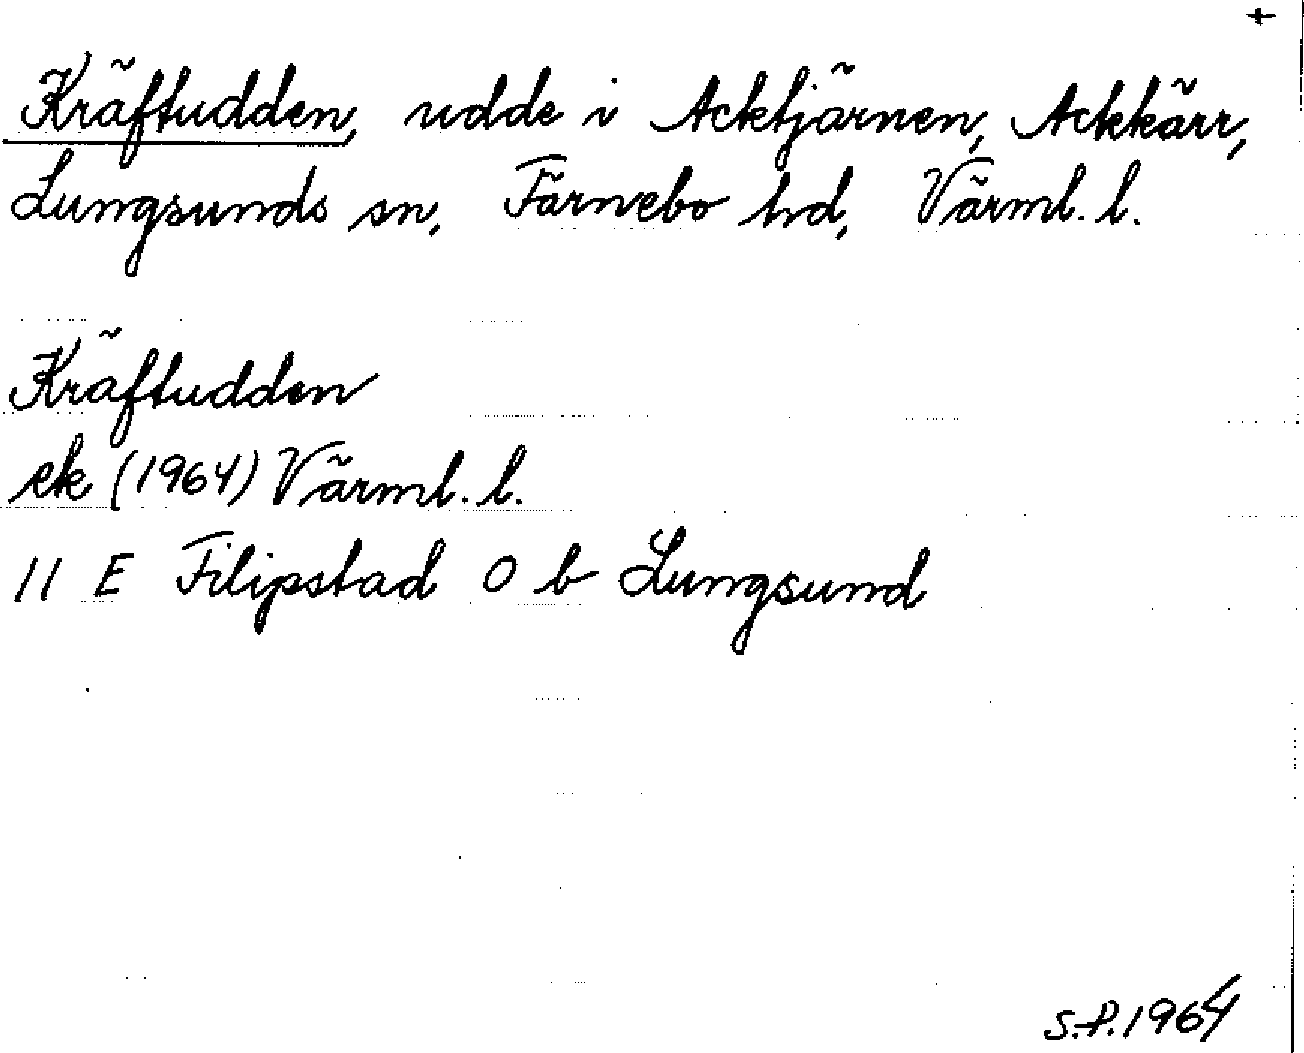 +
Kräftudden, udde i Acktjärnen, Ackkärr,
Lungsunds sn, Färnebo hd, Värml. l.
Kräftudden
ek (1964) Värml. l.
11 E Filipstad 0 b Lungsund
S.P. 1964